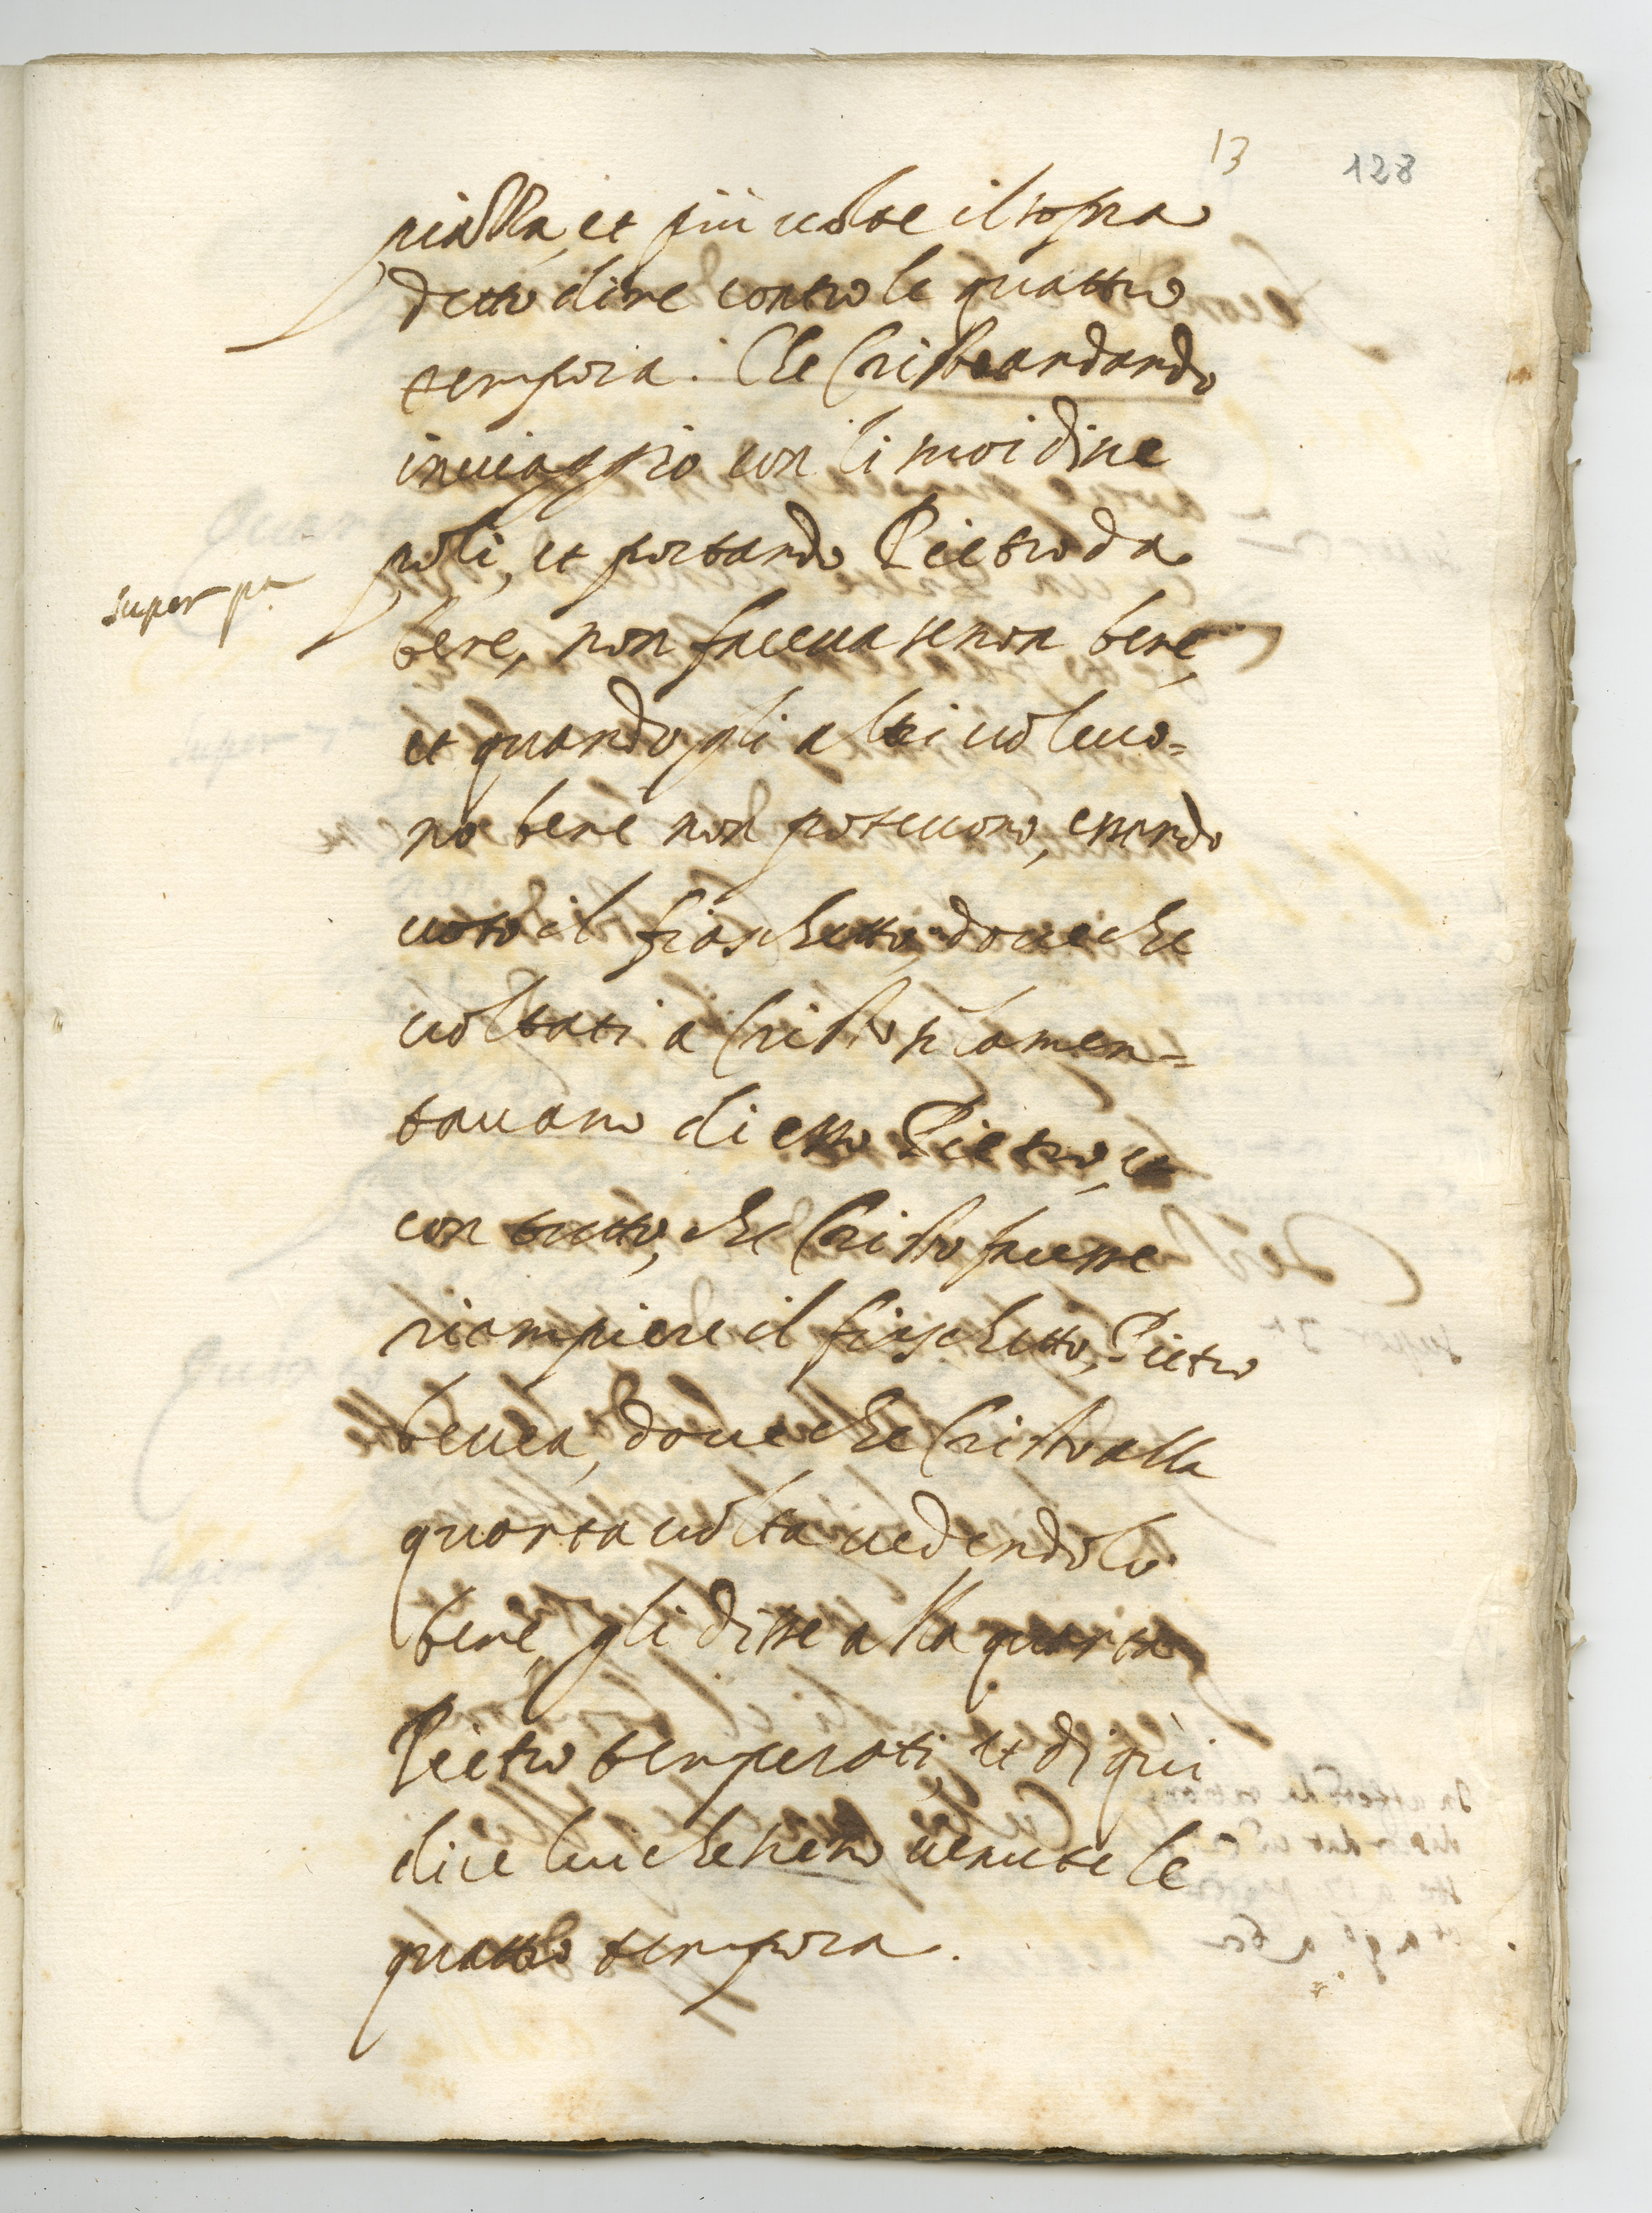 13 128
et più volte il sopra
detto dire contro le quattro
tempora. Che Cristo andando
in viaggio con li suoi disce
poli, et portando Pietro da
super pa
bere, non faceva se non bere,
et quando gli altri volevo=
no bere non potevono, essendo
voto il fiaschetto, dove che
voltati a Cristo si lamen=
tavano di esso Pietro, et
con tutto, che Cristo facesse
riempiere il fiaschetto, Pietro
bevea, dove che Cristo alla
quarta volta vedendolo
bere, gli disse alla quarta
Pietro temperati, et di qui
dice lui che sieno venute le
quattro tempora.